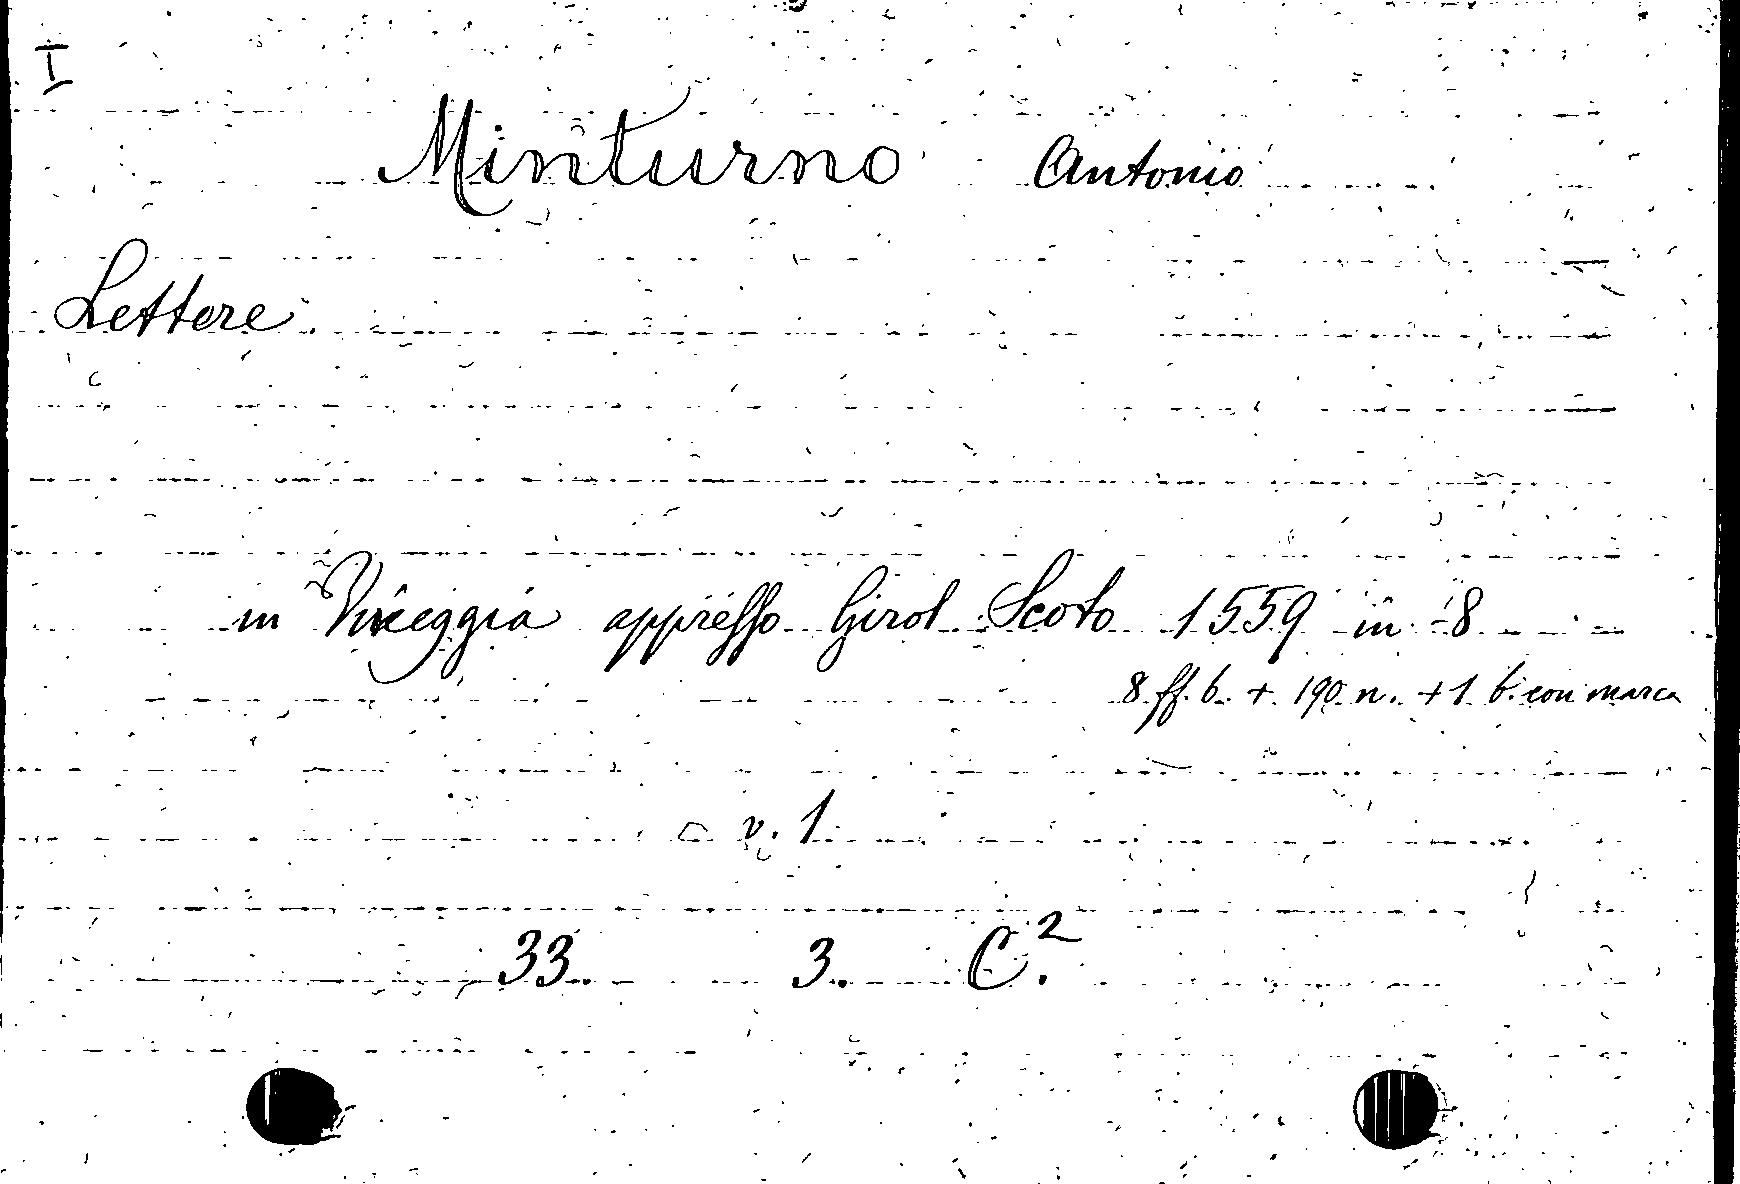 I
Minturno Antonio
Lettere.
in Vineggia appresso Girol Scoto 1559 in -8
8 ff. b. + 190 n. + 1 b. con marca
v. 1
33. 3. C.²